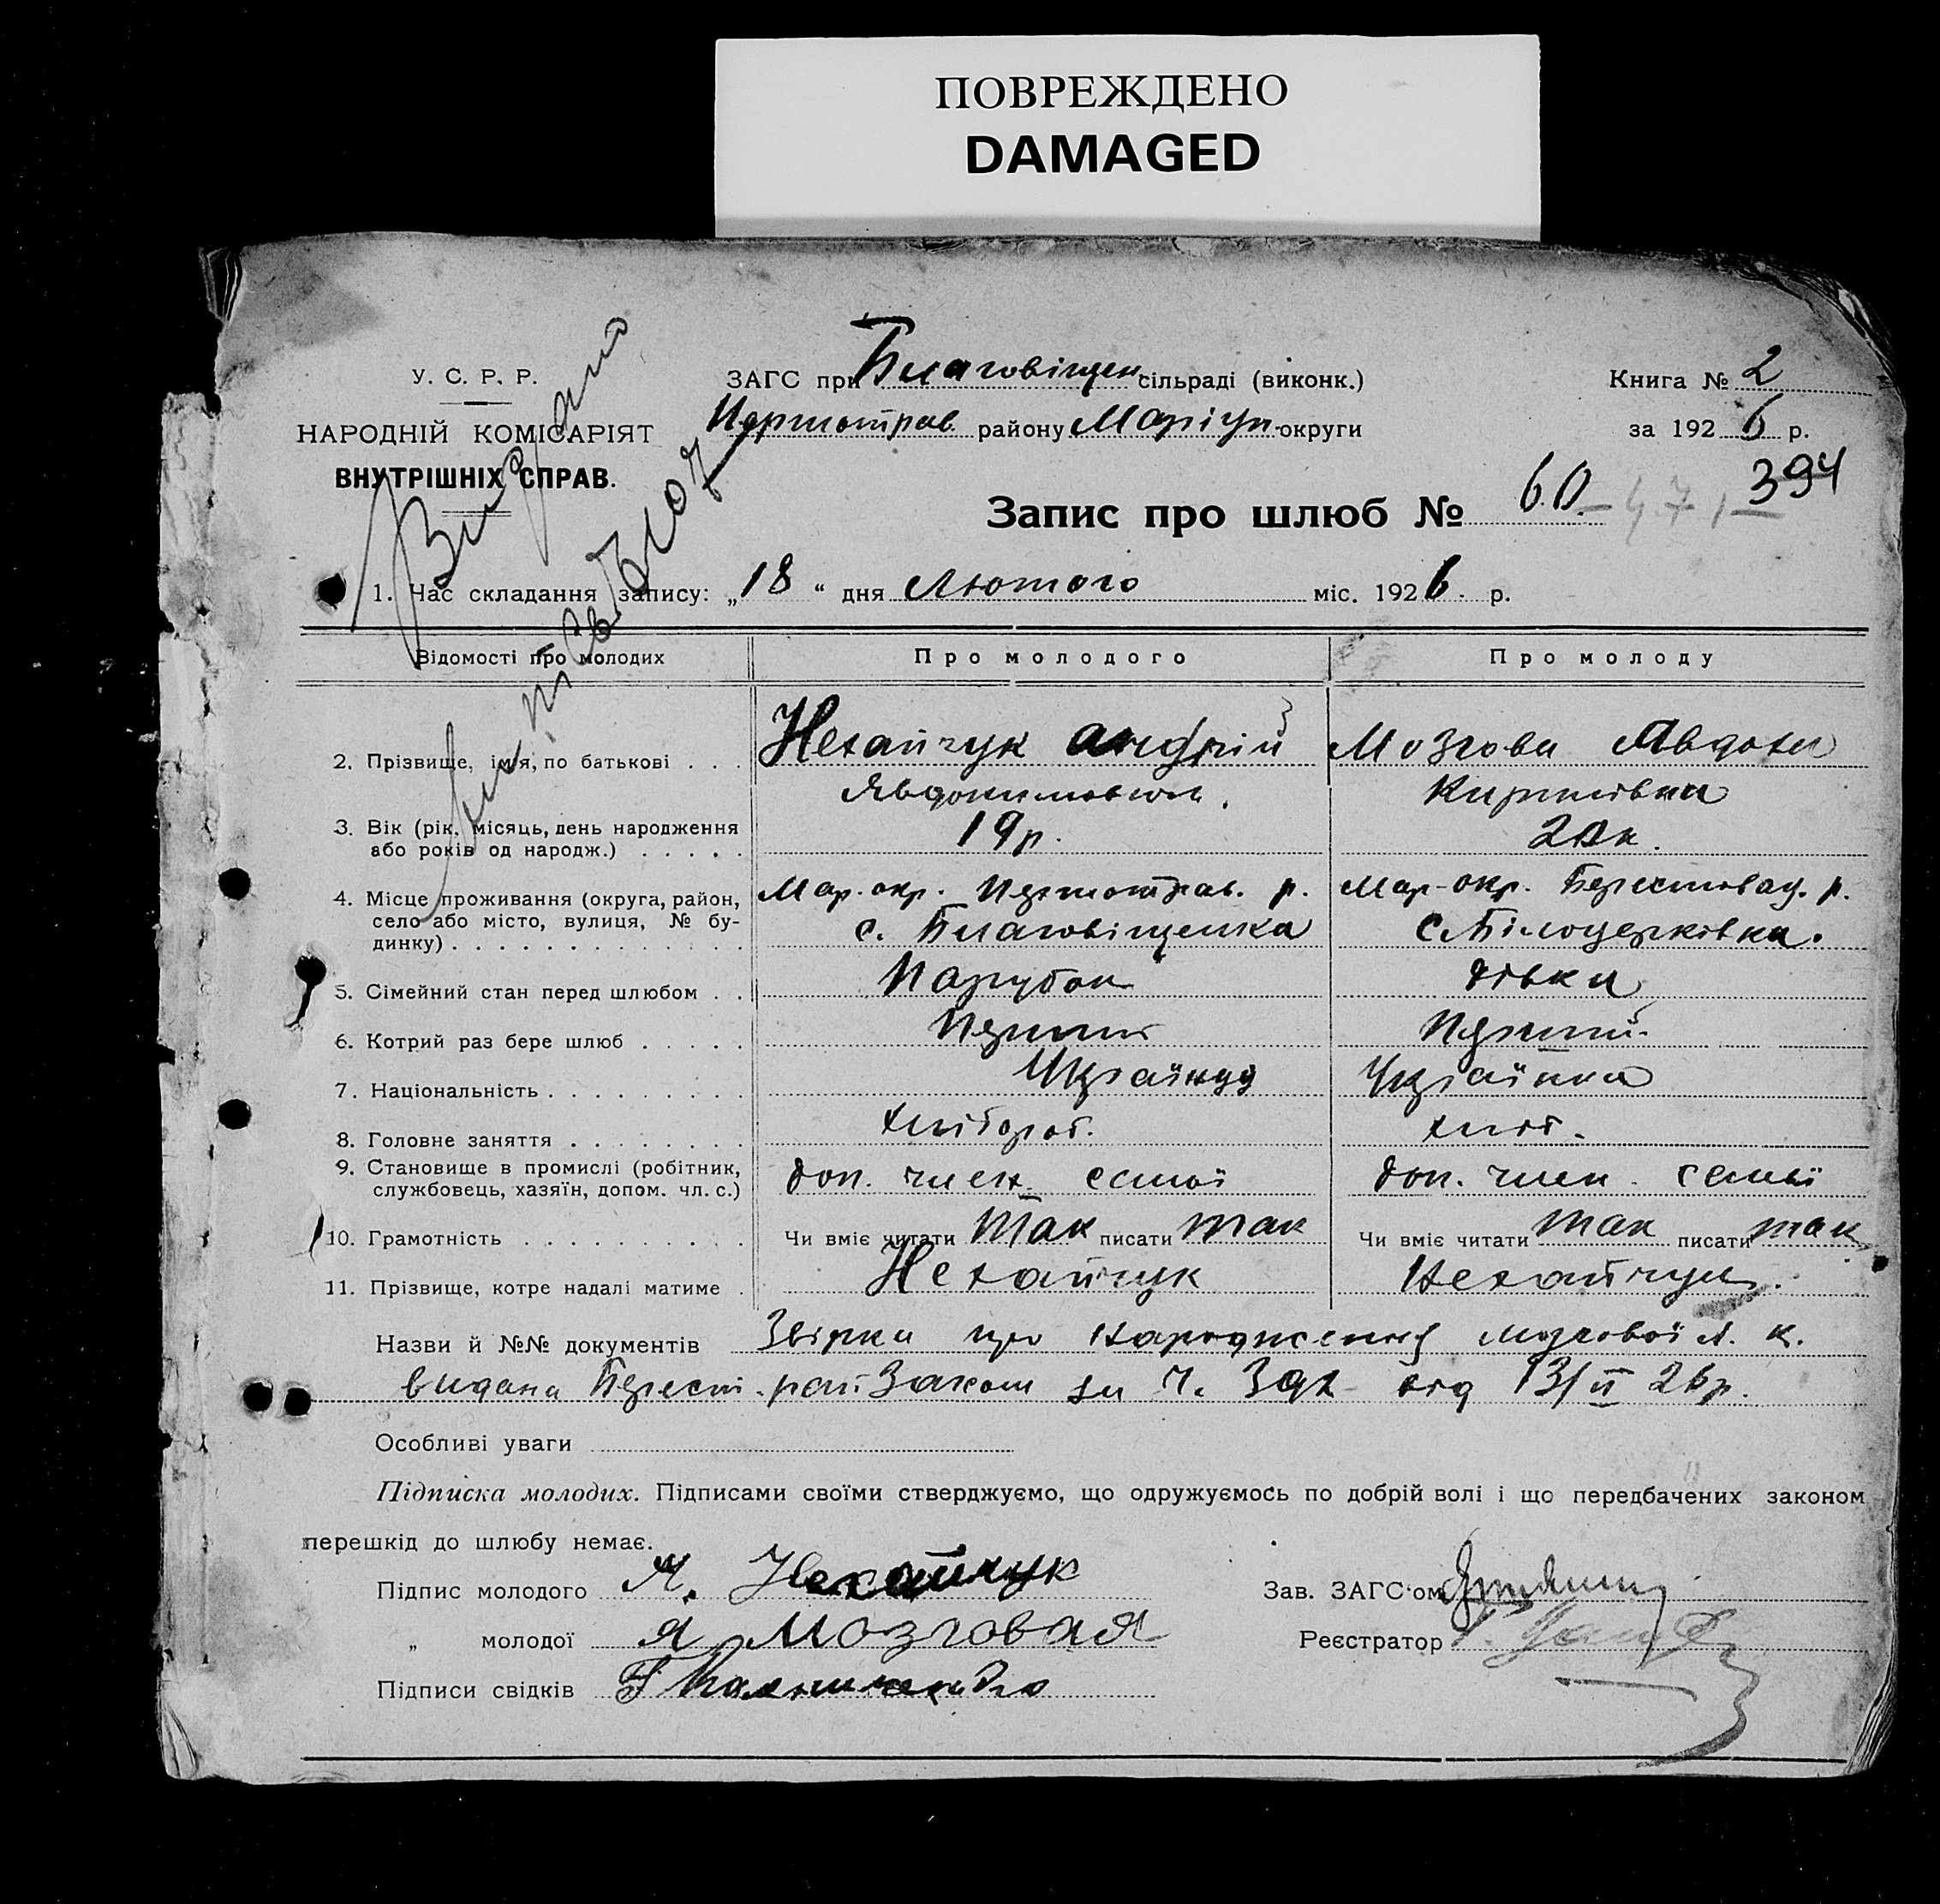 ПОВРЕЖДЕНО
DAMAGED
У. С. Р. Р.
НАРОДНІЙ КОМІСАРІЯТ
ВНУТРІШНІХ СПРАВ.
ЗАГС при Благовіщен сільраді (виконк.)
Першотрав. району Маріуп. округи
Книга № 2
за 1926 р.
Запис про шлюб № 60 – 471 – 394
Видано
1. Час складання запису: „18“ дня Лютого міс. 1926. р.
Відомості про молодих Про молодого Про молоду
2. Прізвище, ім'я, по батькові . . . Нехайчук Андрій Мозгова Явдоха
Явдокимович. Кирилівна
3. Вік (рік, місяць, день народження 19 р. 20 р.
або років од народж.) . . . . .
4. Місце проживання (округа, район, Мар. окр. Першотрав. р. Мар-окр. Берестовац. р.
село або місто, вулиця, № бу- с. Благовіщенка с. Білоцерківка.
динку) . . . . . . . . . . . . .
5. Сімейний стан перед шлюбом . . Парубок дівка
6. Котрий раз бере шлюб . . . . . Перший Перший.
7. Національність . . . . . . . . . Українец Українка
8. Головне заняття . . . . . . . . хлібороб. хліб.
9. Становище в промислі (робітник, доп. член семьї доп. член. семьї
службовець, хазяїн, допом. чл. с.)
10. Грамотність . . . . . . . . . . Чи вміє читати Так писати так Чи вміє читати так писати так
11. Прізвище, котре надалі матиме . Нехайчук Нехайчук.
Назви й №№ документів Звірка про народження Мозгової Я. К.
видана Берест. рай Загсом за Ч. 392 від 13/II 26 р.
Особливі уваги
Підписка молодих. Підписами своїми стверджуємо, що одружуємось по добрій волі і що передбачених законом
перешкід до шлюбу немає.
Підпис молодого А. Нехайчук
Зав. ЗАГС'ом
„ молодої Я Мозговая
Реєстратор
Підписи свідків